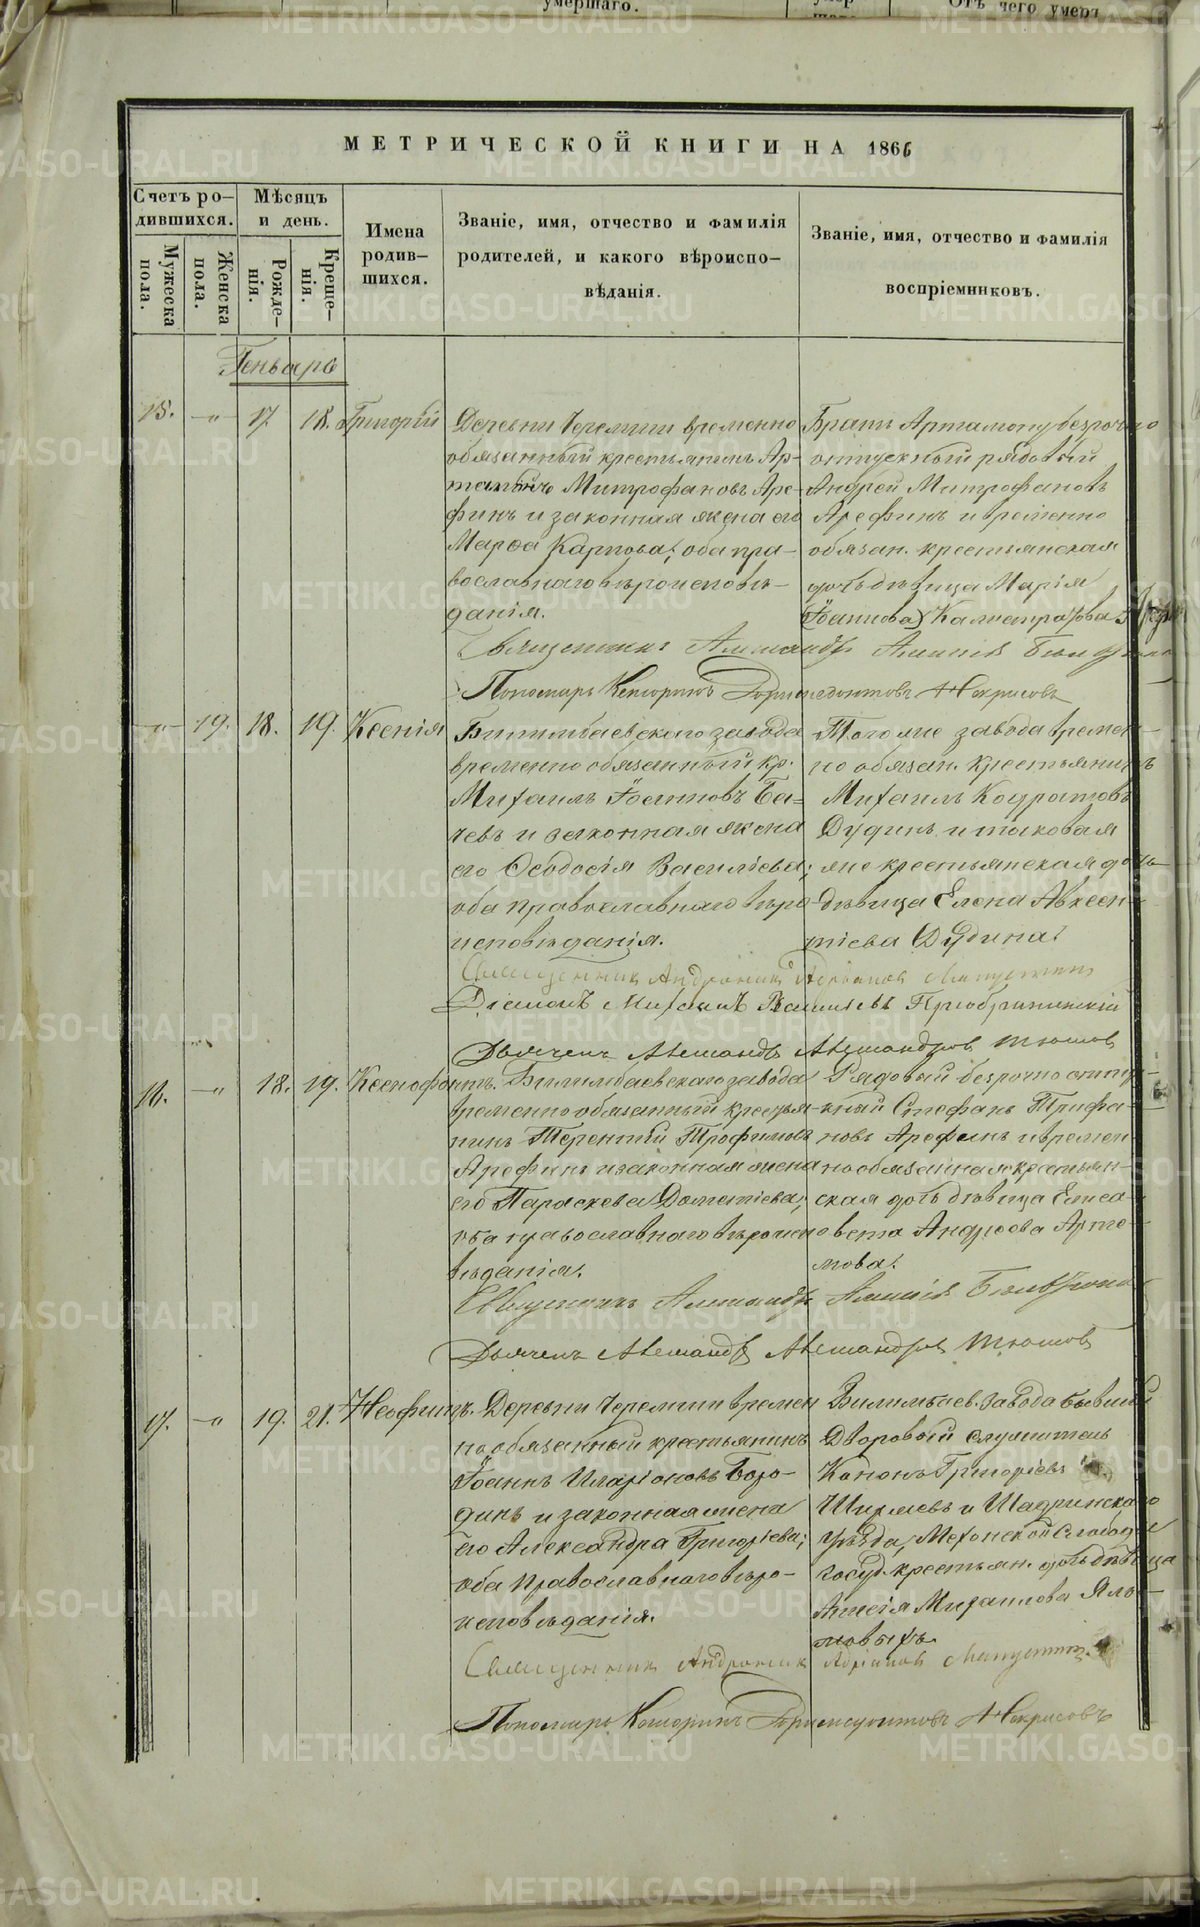 умершаго.
Отъ чего умеръ
МЕТРИЧЕСКОЙ КНИГИ НА 1866
Счетъ ро-
дившихся.
Мѣсяцъ
и день.
Мужеска
пола.
Женска
пола.
Рожде-
нія.
Креще-
нія.
Имена
родив-
шихся.
Званіе, имя, отчество и фамилія
родителей, и какого вѣроиспо-
вѣданія.
Званіе, имя, отчество и фамилія
воспріемниковъ.
Геньварь
15. -"- 17. 18. Григорій
Деревни Черемши временно
обязанный крестьянинъ Ар-
тамонъ Митрофановъ Аре-
финъ и законная жена его
Марѳа Карпова; оба пра-
вославнаго вѣроисповѣ-
данія.
Братъ Артамону безсрочно
отпускный рядовый
Андрей Митрофановъ
Арефинъ и временно
обязан. крестьянская
дочь дѣвица Марія
Іоаннова
Священникъ Александръ
Пономарь Некрасовъ
-"- 19. 18. 19. Ксенія
Билимбаевскаго завода
временно обязанный кр.
Михаилъ Іоанновъ Ба-
чевъ и законная жена
его Ѳеодосія Васильева;
оба православнаго вѣро-
исповѣданія.
Того же завода времен-
но обязан. крестьянинъ
Михаилъ Кодратовъ
Дудинъ и таковая
же крестьянская дочь
дѣвица Елена Авксен-
тіева Дудина.
Священникъ Андроникъ Адріановъ
Діаконъ Михаилъ Васильевъ Преображенскій
Дьячекъ Александръ Александровъ Тюшовъ
16. -"- 18. 19. Ксенофонтъ.
Билимбаевскаго завода
временно обязанный крестья-
нинъ Терентій Трофимовъ
Арефинъ и законная жена
его Параскева Дометіева;
оба православнаго вѣроиспо-
вѣданія.
Рядовый безсрочно отпус-
кный Стефанъ Трифо-
новъ Арефинъ и времен-
но обязанная крестьян-
ская дочь дѣвица Елиса-
вета Андреева Арта-
мова.
Священникъ Александръ
Дьячекъ Александръ Александровъ Тюшовъ
17. -"- 19. 21. Неофитъ.
Деревни Черемши времен
но обязанный крестьянинъ
Іоаннъ Иларіоновъ Боро-
динъ и законная жена
его Александра Григорьева;
оба православнаго вѣро-
исповѣданія.
Билимбаев. завода бывшій
Дворовый служитель
Кононъ Григорьевъ
Ширяевъ и Шадринскаго
уѣзда, Мехонской Слободы
госуд. крестьян. дочь дѣвица
Михаилова Яло-
новыхъ
Священникъ Андроникъ Адріановъ
Пономарь Некрасовъ
METRIKI.GASO-URAL.RU